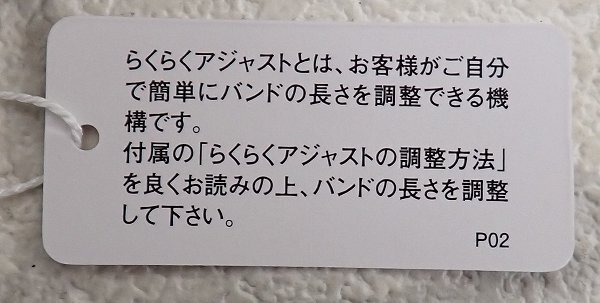 らくらくアジャストとは、お客様がご自分
で簡単にバンドの長さを調整できる機
構です。
付属の「らくらくアジャストの調整方法」
を良くお読みの上、バンドの長さを調整
して下さい。
P02